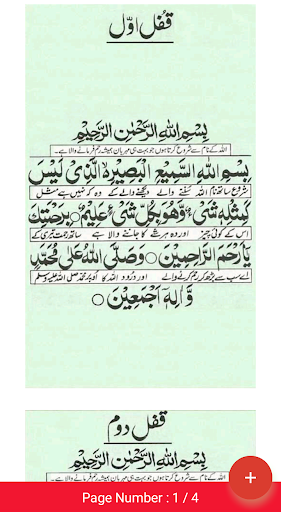 قفل اوّل
بِسْمِ اللهِ الرَّحْمٰنِ الرَّحِيْمِ
اللہ کے نام سے شروع کرتا ہوں جو بہت ہی مہربان ہمیشہ رحم فرمانے والا ہے۔
بِسْمِ اللهِ السَّمِيْعِ الْبَصِيْرِ الَّذِىْ لَيْسَ
شروع ساتھ نام اللہ سننے والے دیکھنے والے کے وہ کہ نہیں ہے مثل
كَمِثْلِهٖ شَىْءٌ وَّهُوَ بِكُلِّ شَىْءٍ عَلِيْمٌ ○ بِرَحْمَتِكَ
اس کے کوئی چیز اور وہ ہر شے کا جاننے والا ہے ساتھ رحمت تیری کے
يَا اَرْحَمَ الرَّاحِمِيْنَ ○ وَصَلَّى اللهُ عَلٰى مُحَمَّدٍ
اے سب سے بڑھ کر رحم کرنے والے اور درُود اللہ کا اُوپر محمد صلی اللہ علیہ وسلم
وَّاٰلِهٖ اَجْمَعِيْنَ ○
قفل دوم
بِسْمِ اللهِ الرَّحْمٰنِ الرَّحِيْمِ
اللہ کے نام سے شروع کرتا ہوں جو بہت ہی مہربان ہمیشہ رحم فرمانے والا ہے۔
+
Page Number : 1 / 4